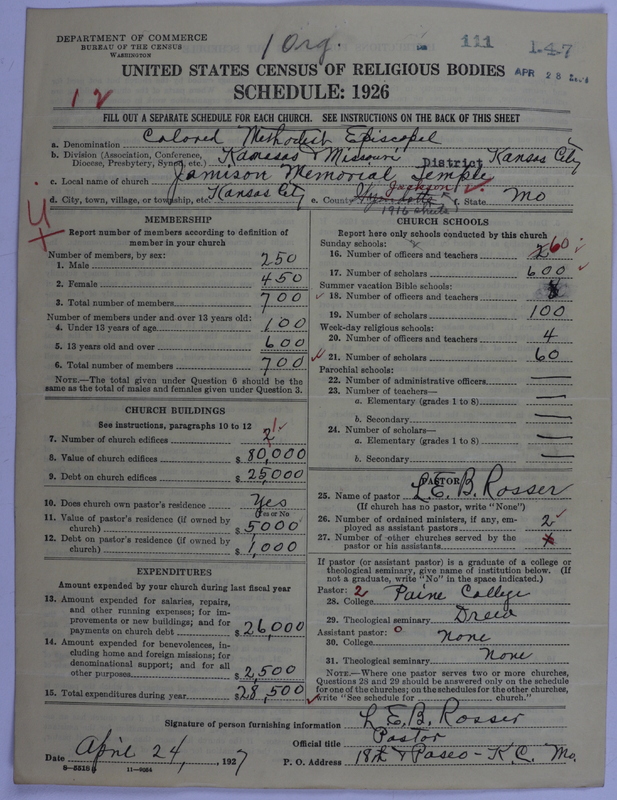 DEPARTMENT OF COMMERCE
BUREAU OF THE CENSUS
WASHINGTON
1 Org.
111
1-4-7
APR 28
UNITED STATES CENSUS OF RELIGIOUS BODIES
SCHEDULE: 1926
12
FILL OUT A SEPARATE SCHEDULE FOR EACH CHURCH. SEE INSTRUCTIONS ON THE BACK OF THIS SHEET
a. Denomination Colored Methodist Episcopal
b. Division (Association, Conference, Diocese, Presbytery, Synod, etc.) Kansas & Missouri District Kansas City
c. Local name of church Jamison Memorial Temple
d. City, town, village, or township, etc. Kansas City e. County Jackson f. State Mo
MEMBERSHIP
Report number of members according to definition of
member in your church
Number of members, by sex:
1. Male 250
2. Female 450
3. Total number of members 700
Number of members under and over 13 years old:
4. Under 13 years of age 100
5. 13 years old and over 600
6. Total number of members 700
NOTE.—The total given under Question 6 should be the
same as the total of males and females given under Question 3.
CHURCH BUILDINGS
See instructions, paragraphs 10 to 12
7. Number of church edifices 2 1
8. Value of church edifices $ 80,000
9. Debt on church edifices $ 25,000
10. Does church own pastor's residence Yes
(Yes or No
11. Value of pastor's residence (if owned by
church) $ 5000
12. Debt on pastor's residence (if owned by
church) $ 1,000
EXPENDITURES
Amount expended by your church during last fiscal year
13. Amount expended for salaries, repairs,
and other running expenses; for im-
provements or new buildings; and for
payments on church debt $ 26,000
14. Amount expended for benevolences, in-
cluding home and foreign missions; for
denominational support; and for all
other purposes $ 2,500
15. Total expenditures during year $ 28,500
CHURCH SCHOOLS
Report here only schools conducted by this church
Sunday schools:
16. Number of officers and teachers 60
17. Number of scholars 600
Summer vacation Bible schools:
18. Number of officers and teachers
19. Number of scholars 100
Week-day religious schools:
20. Number of officers and teachers 4
21. Number of scholars 60
Parochial schools:
22. Number of administrative officers —
23. Number of teachers—
a. Elementary (grades 1 to 8) —
b. Secondary —
24. Number of scholars—
a. Elementary (grades 1 to 8) —
b. Secondary —
PASTOR
25. Name of pastor L.E.B. Rosser
(If church has no pastor, write "None")
26. Number of ordained ministers, if any, em-
ployed as assistant pastors 2
27. Number of other churches served by the
pastor or his assistants
If pastor (or assistant pastor) is a graduate of a college or
theological seminary, give name of institution below. (If
not a graduate, write "No" in the space indicated.)
Pastor: 2
28. College Paine College
29. Theological seminary Drew
Assistant pastor: 0
30. College None
31. Theological seminary None
NOTE.—Where one pastor serves two or more churches,
Questions 28 and 29 should be answered only on the schedule
for one of the churches; on the schedules for the other churches,
write "See schedule for church."
Signature of person furnishing information L.E.B. Rosser
Official title Pastor
Date April 24, 1927 P. O. Address 18th & Paseo - K.C. Mo.
8-5518
11-9054